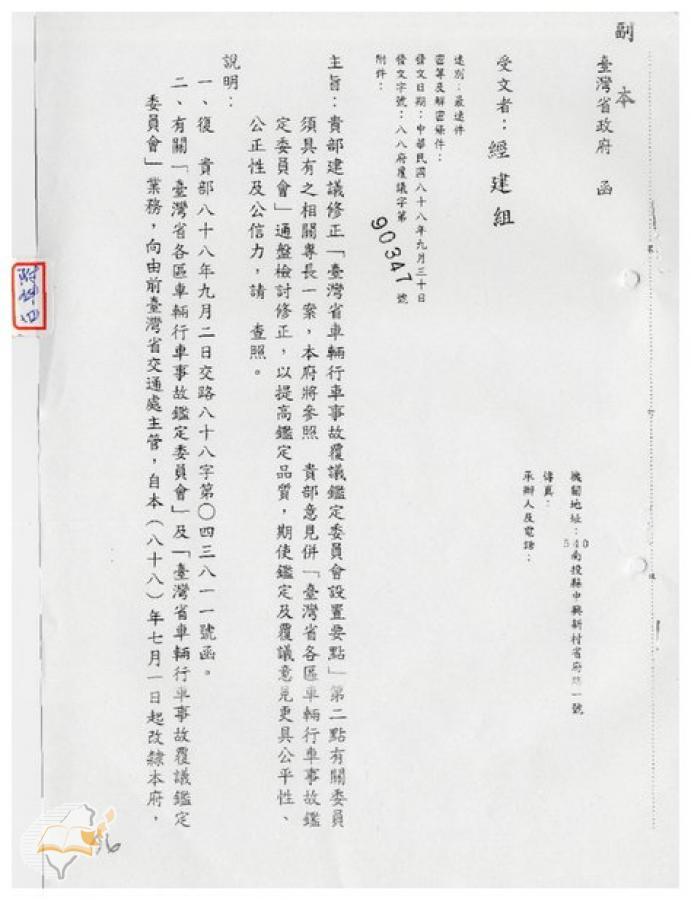 副本
臺灣省政府 函
機關地址:540南投縣中興新村省府路一號
傳真:
承辦人及電話:
受文者:經建組
速別:最速件
密等及解密條件:
發文日期:中華民國八十八年九月三十日
發文字號:八八府覆議字第 90347 號
附件:
主旨:貴部建議修正「臺灣省車輛行車事故覆議鑑定委員會設置要點」第二點有關委員
須具有之相關專長一案,本府將參照 貴部意見併「臺灣省各區車輛行車事故鑑
定委員會」通盤檢討修正,以提高鑑定品質,期使鑑定及覆議意見更具公平性、
公正性及公信力,請 查照。
說明:
一、復 貴部八十八年九月二日交路八十八字第〇四三八一一號函。
二、有關「臺灣省各區車輛行車事故鑑定委員會」及「臺灣省車輛行車事故覆議鑑定
委員會」業務,向由前臺灣省交通處主管,自本(八十八)年七月一日起改隸本府,
附件四